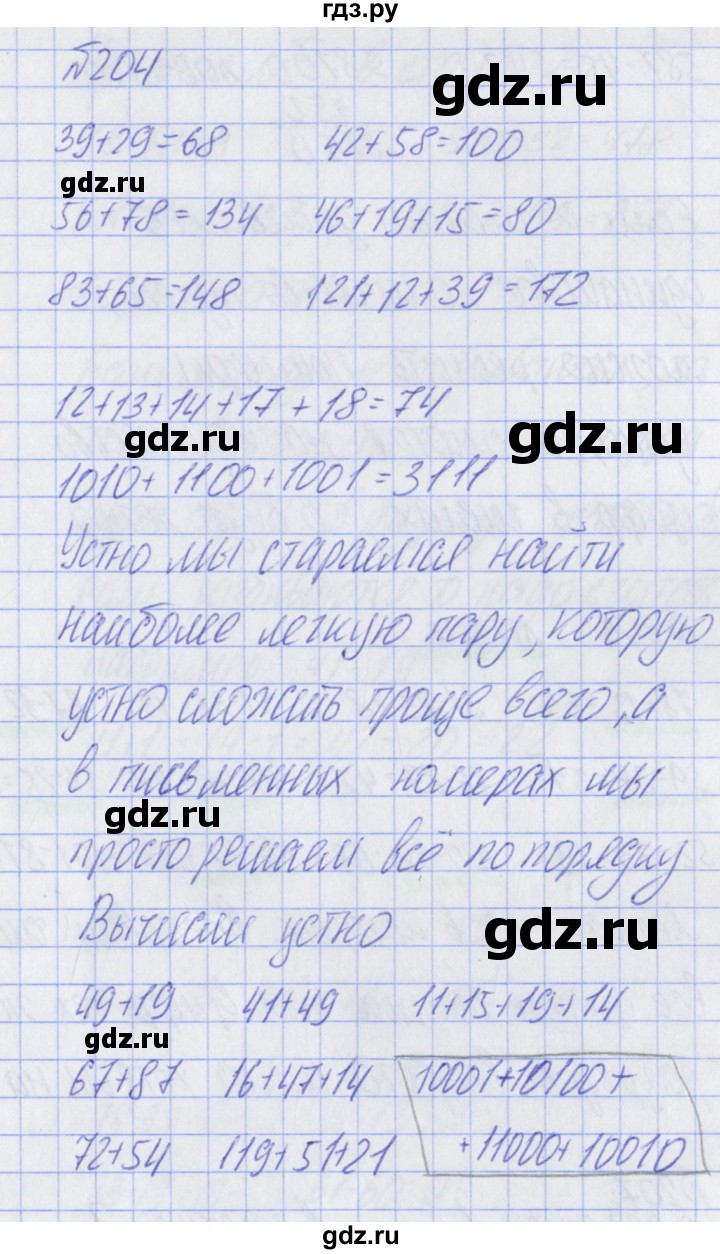 гдз.ру
№204
gdz.ru
39+29=68 42+58=100
gdz.ru
56+78=134 46+19+15=80
83+65=148 121+12+39=172
12+13+14+17+18=74
gdz.ru
gdz.ru
1010+1100+1001=3111
Устно мы стараемся найти
наиболее легкую пару, которую
устно сложить проще всего, а
в письменных номерах мы
gdz.ru
просто решаем всё по порядку
Вычисли устно
gdz.ru
49+19 41+49 11+15+19+14
gdz.ru
67+87 16+47+14 10001+10100+
72+54 119+51+21 +11000+10010
gdz.ru